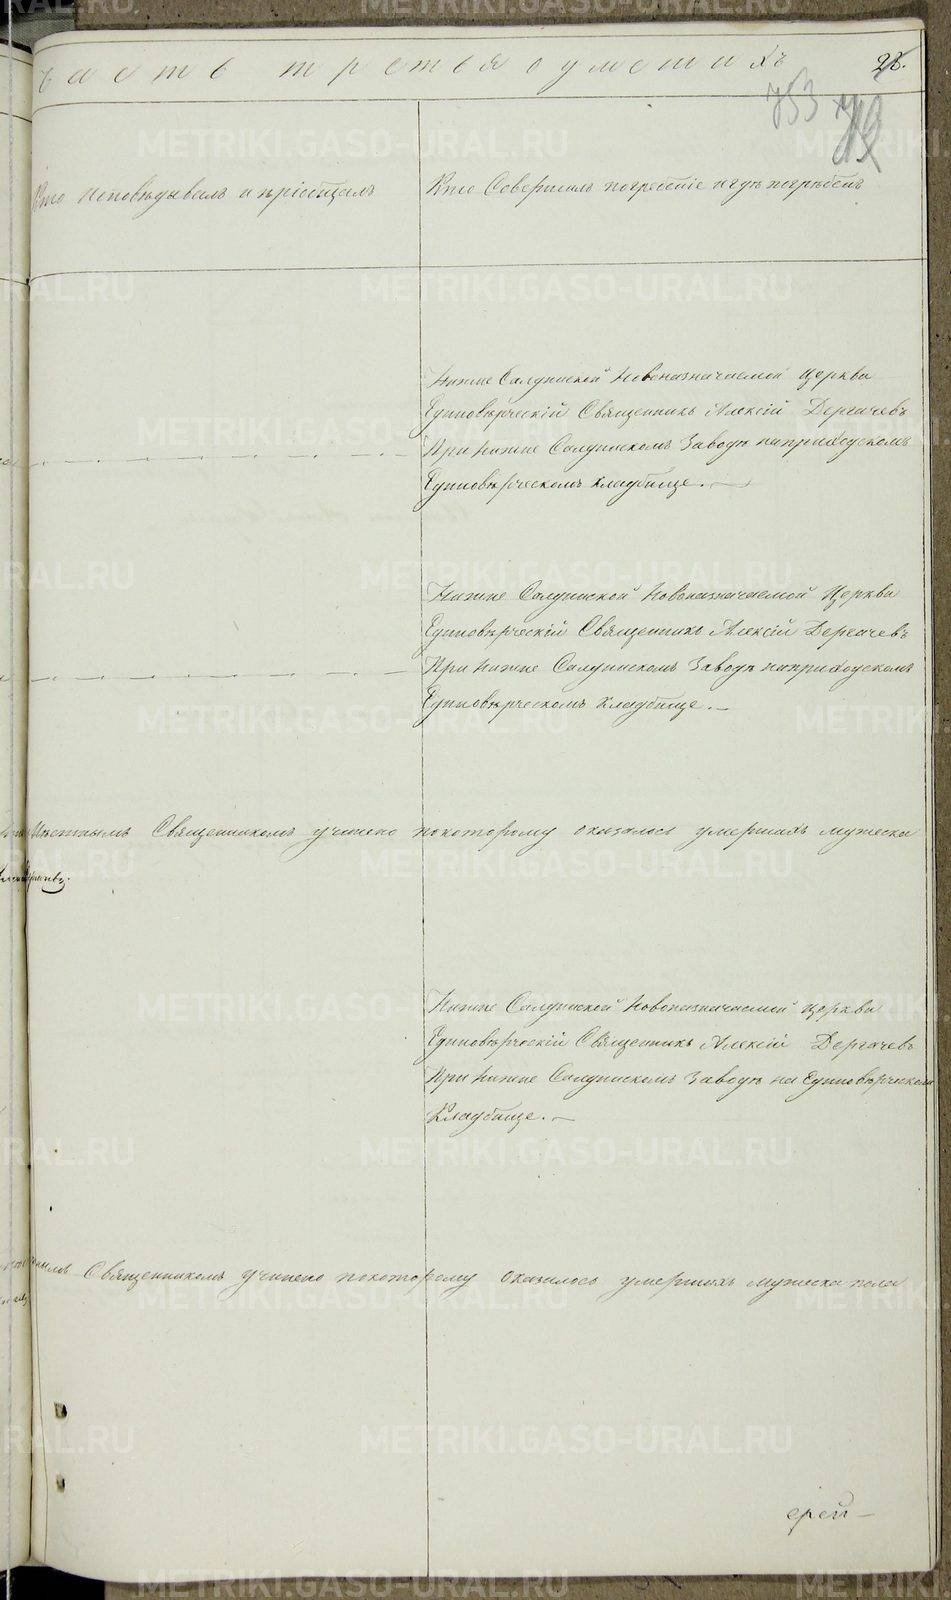 часть третья о умеrшихъ 28.
753
Кто исповѣдывалъ и пріобщалъ
Кто Совершилъ погребеніе и гдѣ погребенъ
Нижне Салдинской Новоназначаемой Церкви
Единовѣрческій Священникъ Алексій Дергачевъ
При Нижне Салдинскомъ Заводѣ на приходскомъ
Единовѣрческомъ кладбище.
Нижне Салдинской Новоназначаемой Церкви
Единовѣрческій Священникъ Алексій Дергачевъ
При Нижне Салдинскомъ Заводѣ на приходскомъ
Единовѣрческомъ Кладбище.
Мѣстнымъ Священникомъ учинено по которому оказалось умершихъ мужеска
Нижне Салдинской Новоназначаемой Церкви
Единовѣрческій Священникъ Алексій Дергачевъ
При Нижне Салдинскомъ Заводѣ на Единовѣрческомъ
Кладбище.
Священникомъ учинено по которому оказалось умершихъ мужеска пола
ерей
METRIKI.GASO-URAL.RU